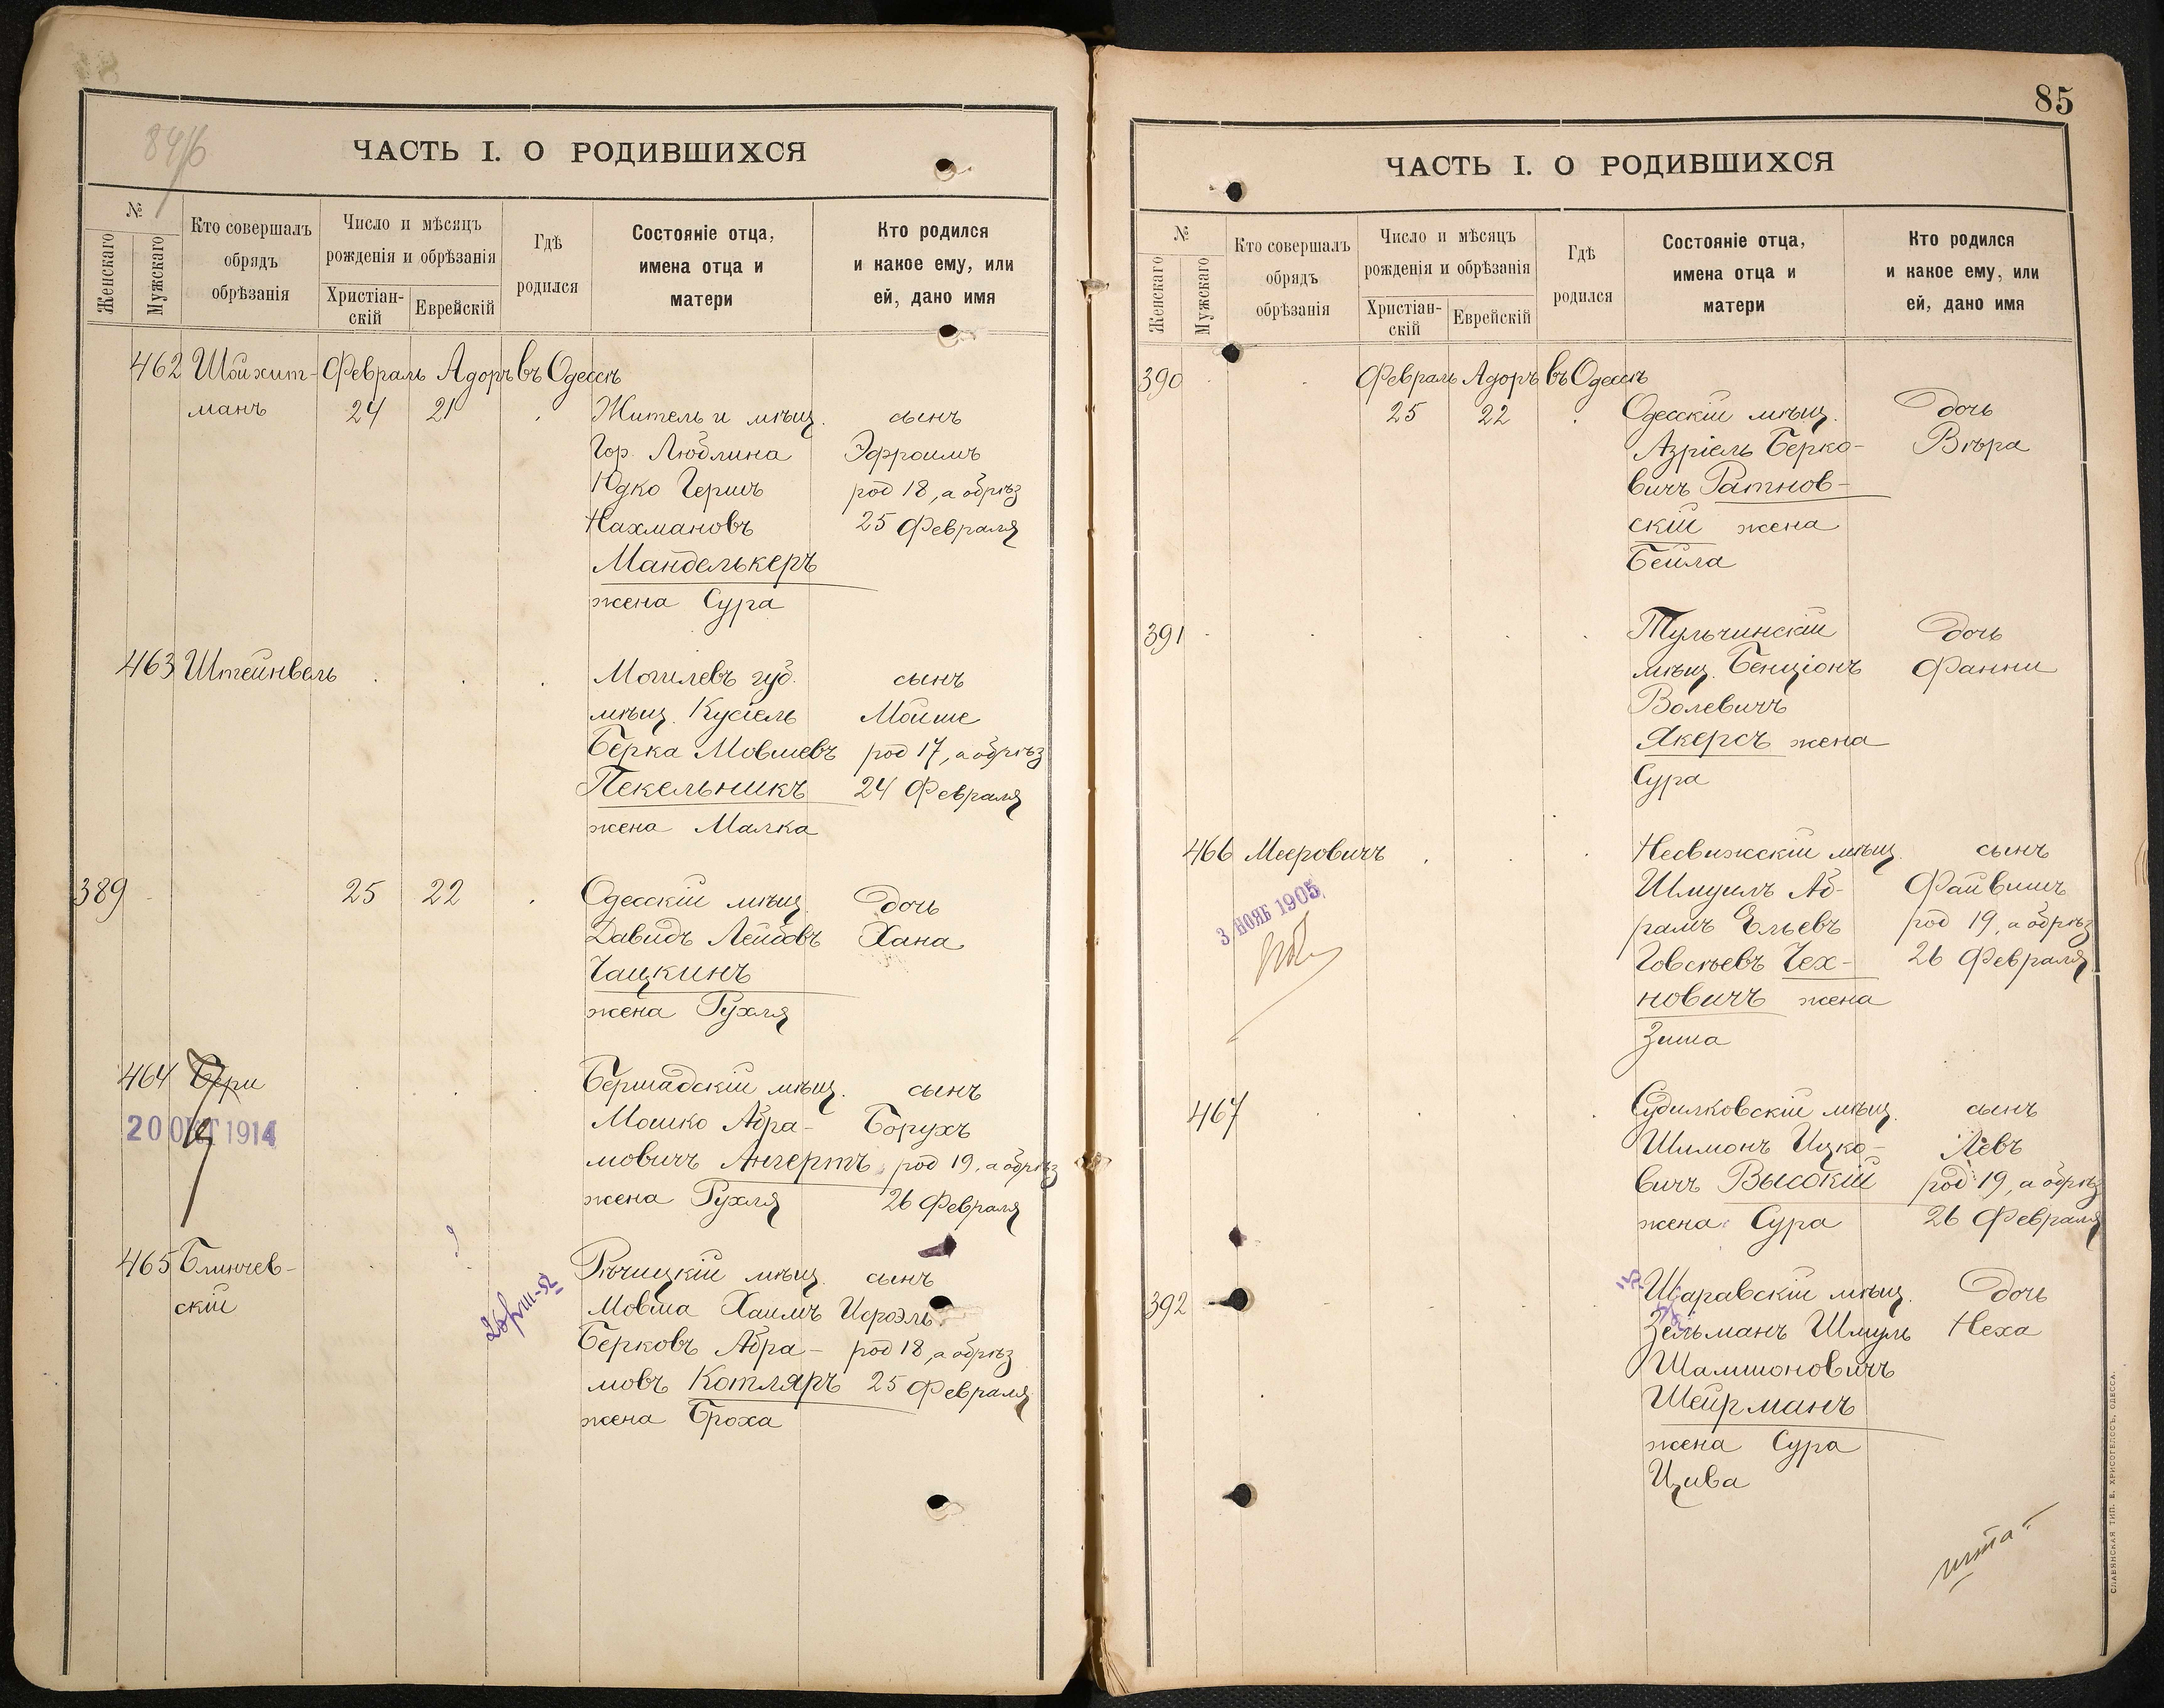 84/б
ЧАСТЬ I. О РОДИВШИХСЯ
№
Женскаго
Мужскаго
Кто совершалъ
обрядъ
обрѣзанія
Число и мѣсяцъ
рожденія и обрѣзанія
Христіан-
скій
Еврейскій
Гдѣ
родился
Состояніе отца,
имена отца и
матери
Кто родился
и какое ему, или
ей, дано имя
462 Шойхит- Февраль Адоръ въ Одессѣ
манъ 24 21 Житель и мѣщ. сынъ
Гор. Люблина Эфроимъ
Юдко Гершъ род 18, а обрѣз
Нахмановъ 25 Февраля
Мандelькеръ
жена Сура
463 Штейнвель Могилевъ губ. сынъ
мѣщ. Кусіель Мойше
Берка Мовшевъ род 17, а обрѣз
Пекельникъ 24 Февраля
жена Малка
389 25 22 Одесскій мѣщ. дочь
Давидъ Лейбовъ Хана
Чацкинъ
жена Рухля
464 Бери Бершадскій мѣщ. сынъ
20 ОКТ 1914 Мошко Абра- Борухъ
мовичъ Ангертъ род 19, а обрѣз
жена Рухля 26 Февраля
465 Блинчев- Рѣчицкій мѣщ. сынъ
скій Мовша Хаимъ Исроэль
Берковъ Абра- род 18, а обрѣз
мовъ Котляръ 25 Февраля
жена Броха
85
ЧАСТЬ I. О РОДИВШИХСЯ
№
Женскаго
Мужскаго
Кто совершалъ
обрядъ
обрѣзанія
Число и мѣсяцъ
рожденія и обрѣзанія
Христіан-
скій
Еврейскій
Гдѣ
родился
Состояніе отца,
имена отца и
матери
Кто родился
и какое ему, или
ей, дано имя
390 Февраль Адоръ въ Одессѣ
25 22 Одесскій мѣщ. дочь
Азріель Берко- Вѣра
вичъ Ратнов-
скій жена
Бейла
391 Тульчинскій дочь
мѣщ. Бенціонъ Фанни
Волевичъ
Якерсъ жена
Сура
466 Мееровичъ Несвижскій мѣщ. сынъ
3 НОЯБ 1905 Шмуилъ Аб- Файвишъ
рамъ Ельевъ род 19, а обрѣз
Говсѣевъ Чех- 26 Февраля
новичъ жена
Зиша
467 Судилковскій мѣщ. сынъ
Шимонъ Ицко- Левъ
вичъ Высокій род 19, а обрѣз
жена Сура 26 Февраля
392 Шаравскій мѣщ. дочь
Зельманъ Шмуль Неха
Шамшоновичъ
Шейрманъ
жена Сура
Цива
СЛАВЯНСКАЯ ТИП. Е. ХРИСОГЕЛОСЪ, ОДЕССА.